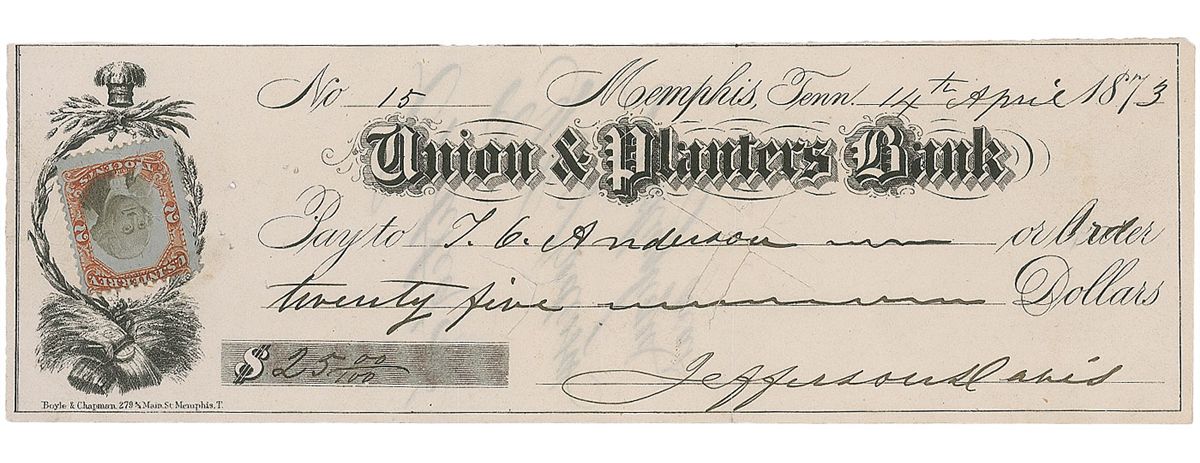 No 15 Memphis, Tenn. 14th April 1873
Union & Planters Bank
Pay to T. C. Anderson or Order
twenty five Dollars
$ 25 00/100
Jefferson Davis
Boyle & Chapman, 279 ½ Main St. Memphis, T.